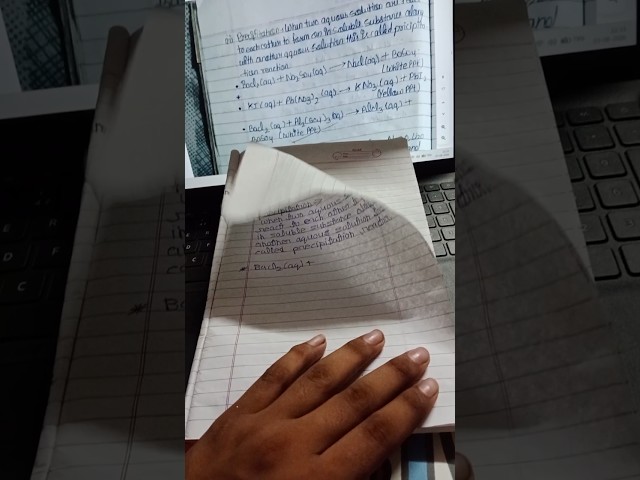 Precipitation : When two aqueous solution are
to each other to form an insoluble substance along
with another aqueous solution this is called precipita
tion reaction.
• BaCl2 (aq) + Na2SO4 (aq) → NaCl (aq) + BaSO4
(White PPt)
• KI (aq) + Pb(NO3)2 (aq) → KNO3 (aq) + PbI2
(Yellow PPt)
• BaCl2 (aq) + Al2(SO4)3 (aq) → AlCl3 (aq) +
BaSO4 (White PPt)
when two aqueous
react to each other to
in soluble substance
another aqueous solution
called precipitation
* BaCl2 (aq) +